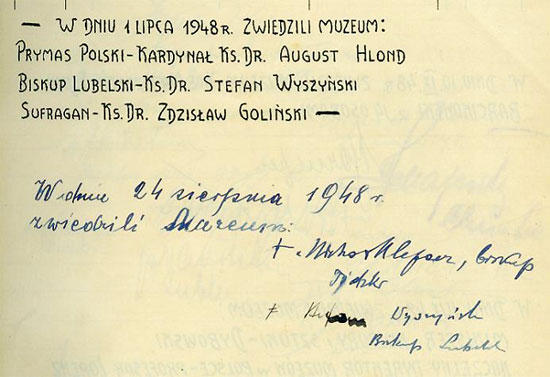 — W DNIU 1 LIPCA 1948 R. ZWIEDZILI MUZEUM:
PRYMAS POLSKI-KARDYNAŁ KS. DR. AUGUST HLOND
BISKUP LUBELSKI-KS. DR. STEFAN WYSZYŃSKI
SUFRAGAN-KS. DR. ZDZISŁAW GOLIŃSKI —
W dniu 24 sierpnia 1948 r.
zwiedzili Muzeum:
+ Michał Klepacz, biskup
łódzki
+ Stefan Wyszyński
Biskup Lubelski